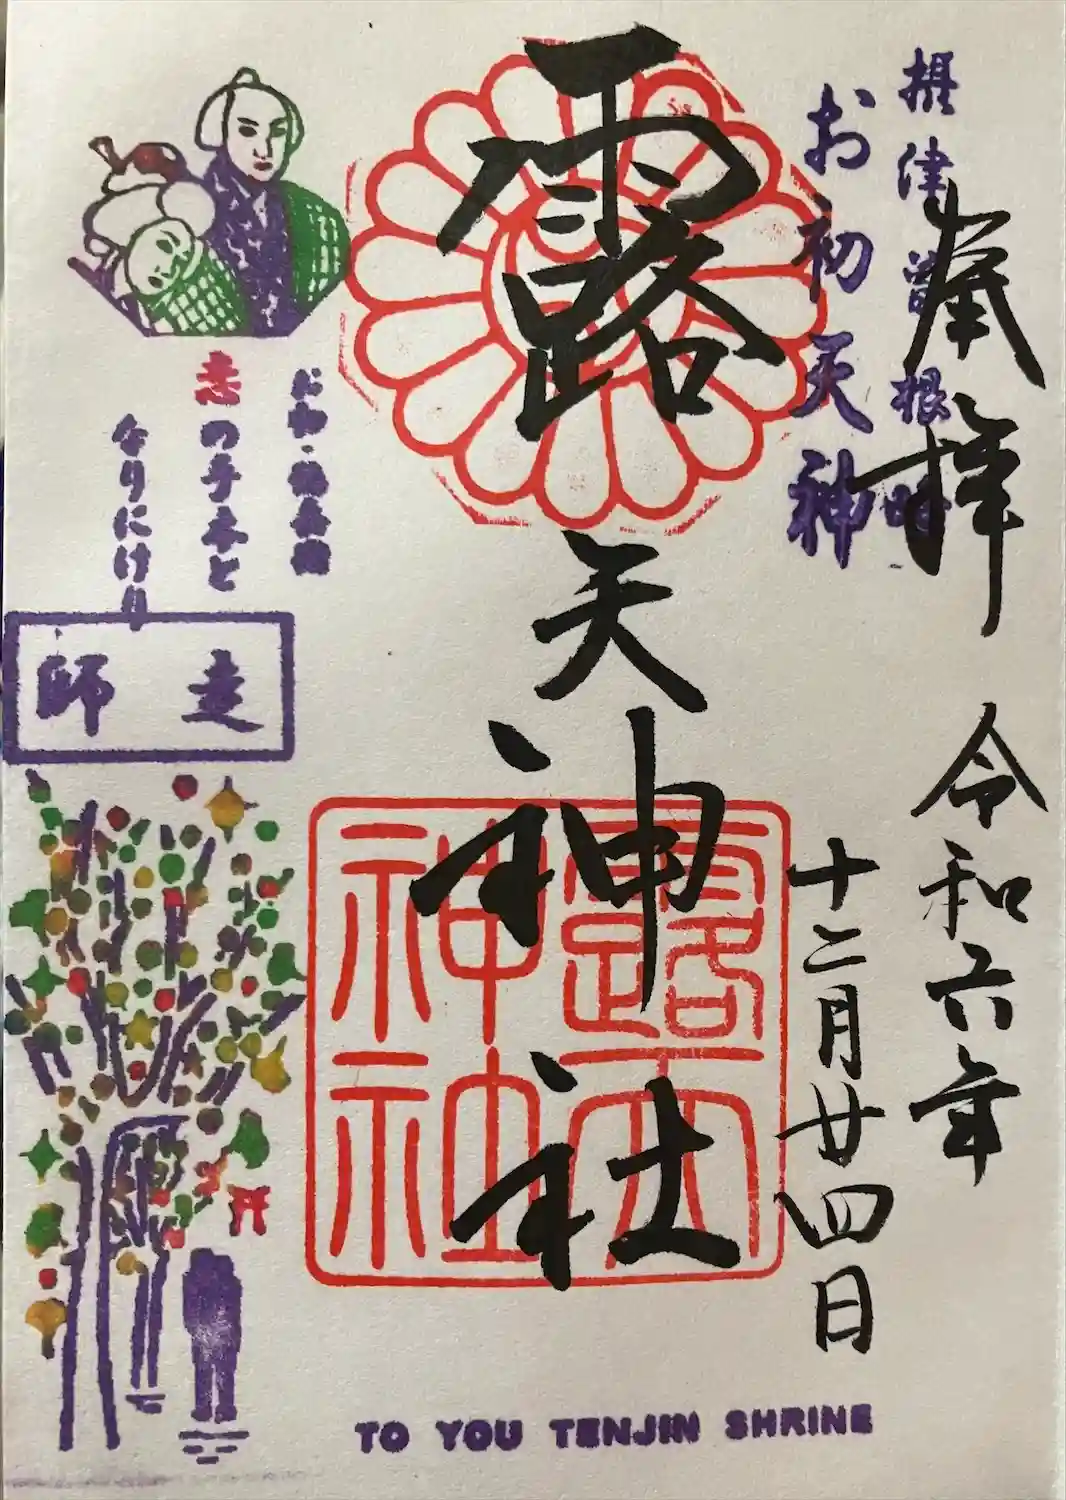 摂津曽根崎
奉拝
お初天神
令和六年
十二月廿四日
露天神社
露天神社
お初・徳兵衛
恋の手本と
なりにけり
走師
TO YOU TENJIN SHRINE